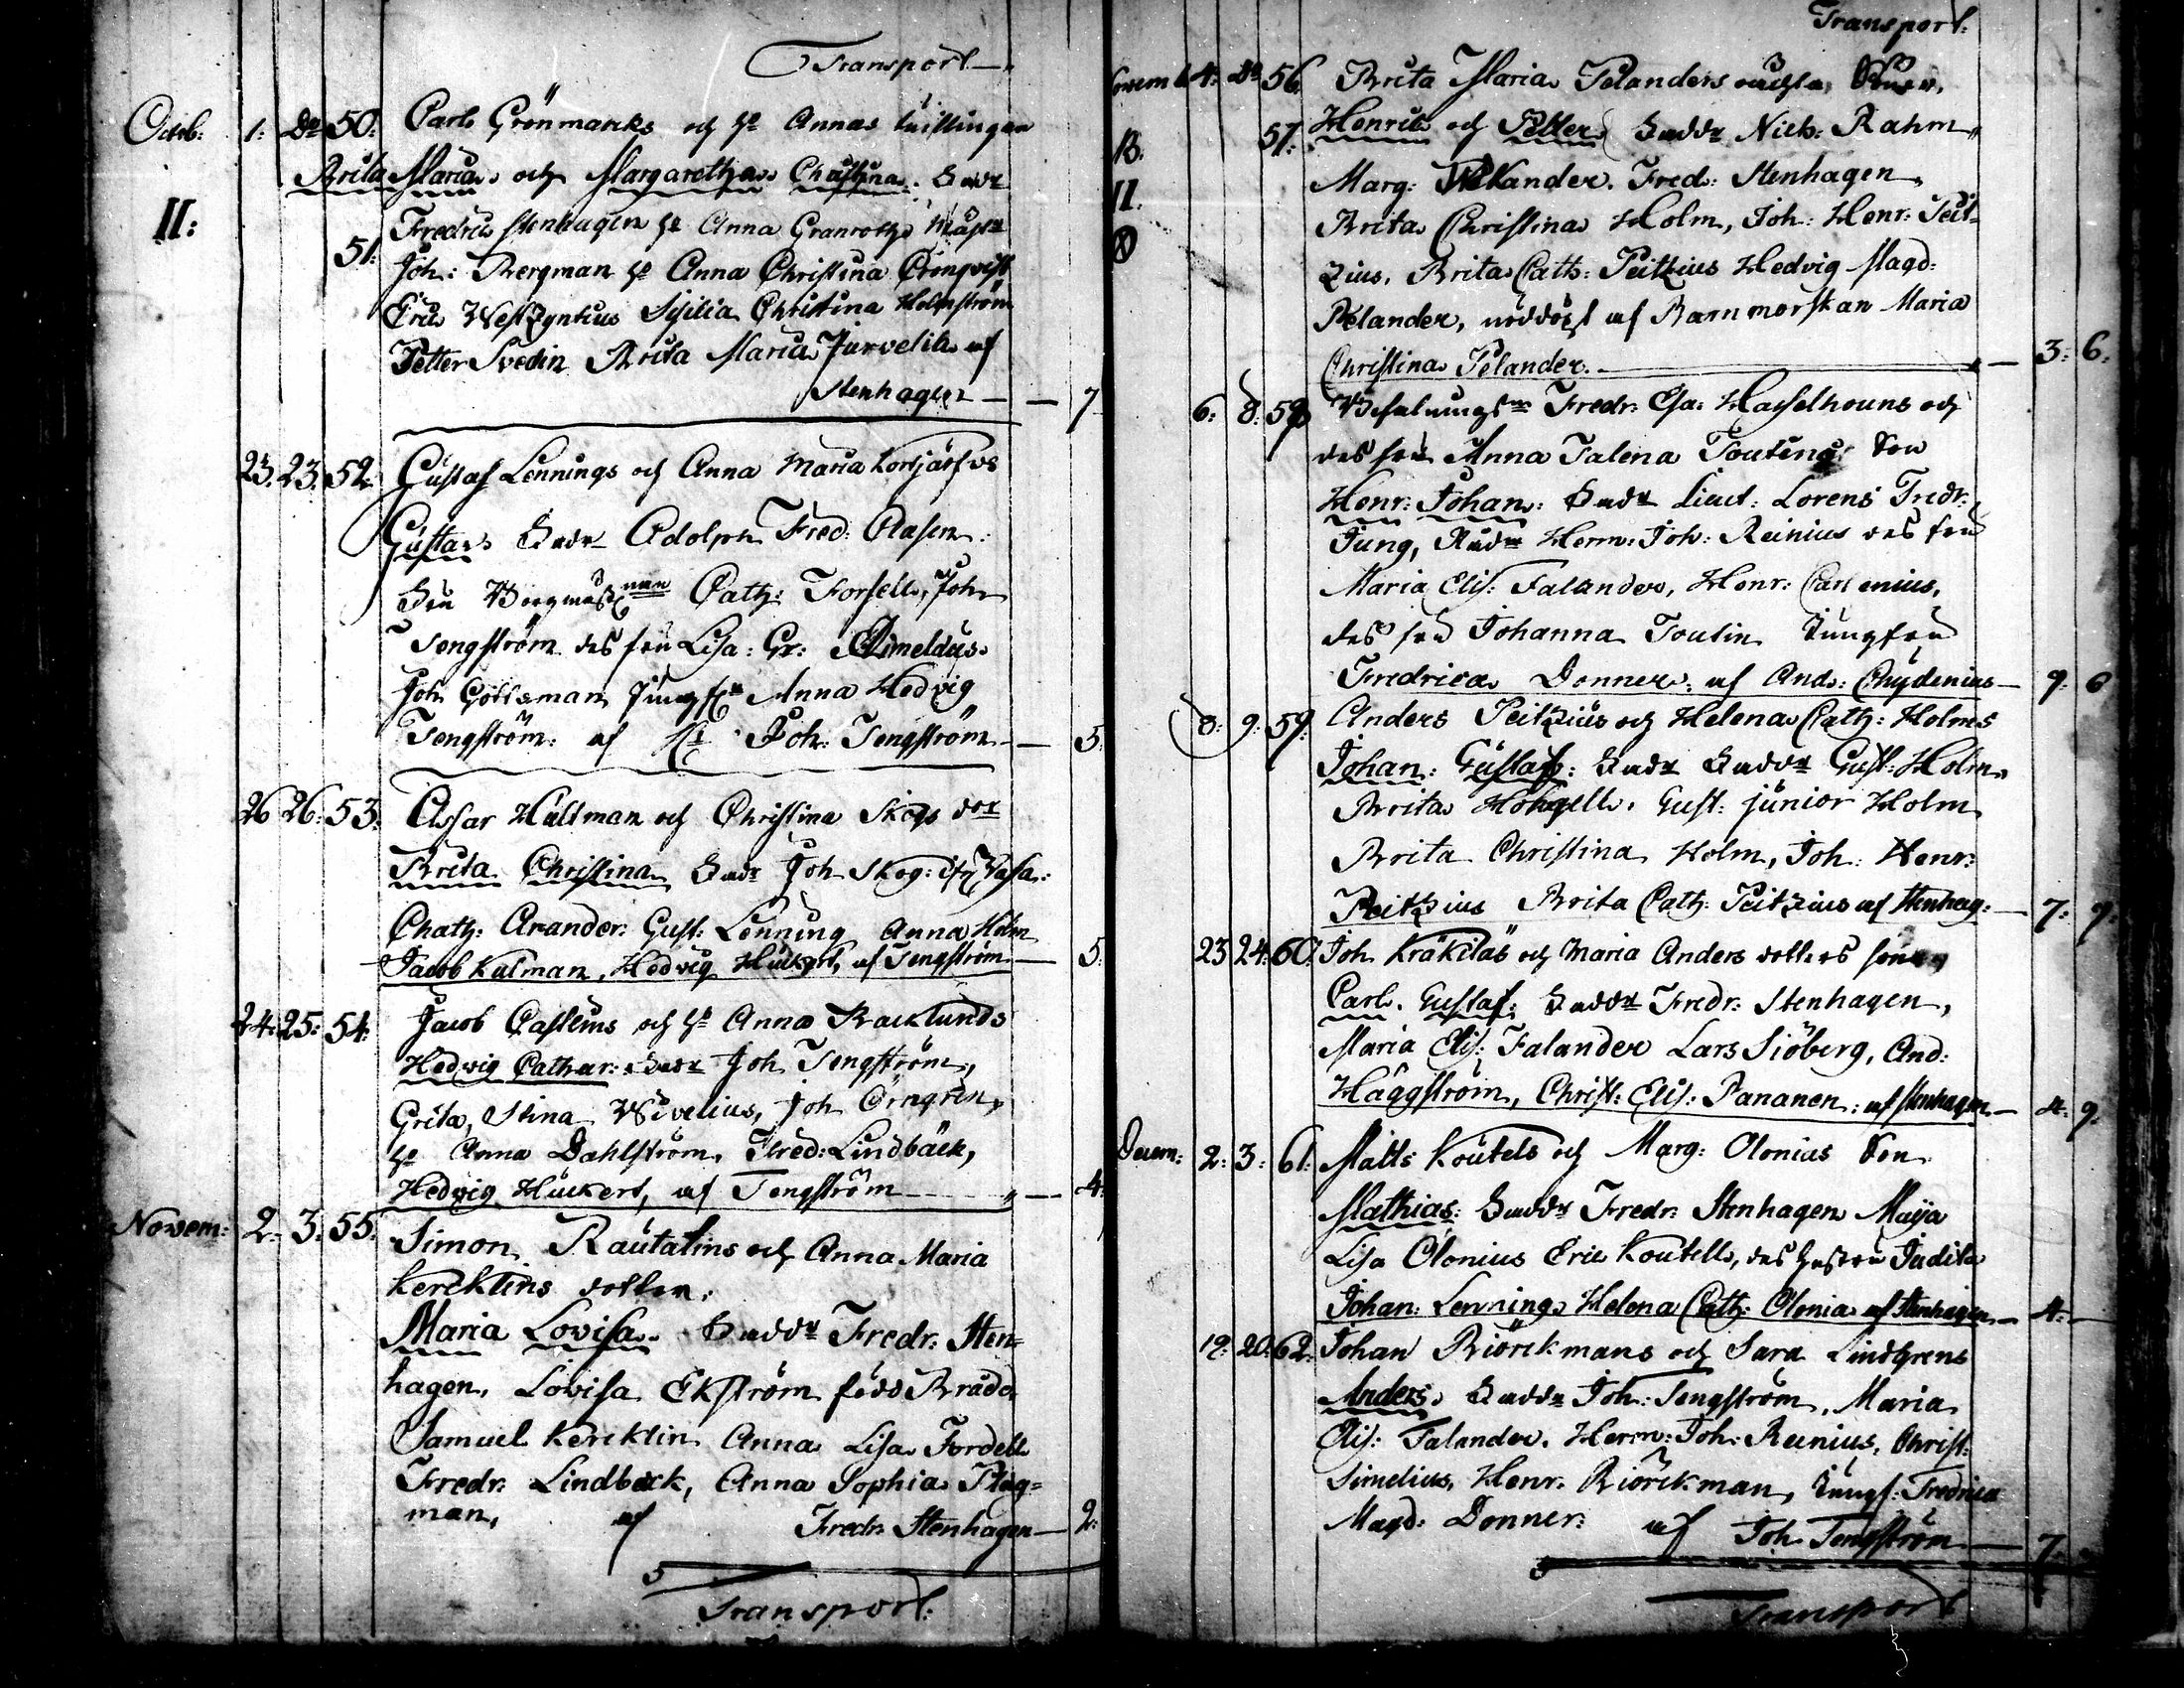 Transport
Octob: 1: Do 50: Carl Grönmarcks och H. Annas tvillingar
Brita Maria och Margaretha Christina. Fadr
II:
51: Fredric Stenhagen H. Anna Granroth,
Joh: Bergman H. Anna Christina Cronqvist
Eric Westzyntius Christina Holmström
Petter Svedin Brita Maria Järvelin af
Stenhagen — 7
23. 23. 52. Gustaf Lennings och Anna Maria
Gustav Fadr Adolph Fred: Clasen
Cath: Forsell, Joh
Tengström des fru Lisa: Gr:
Joh Gottsman Jungfr Anna Hedvig
Tengström. af Joh: Tengström — 5.
26 26. 53. Assar Hültman och Christina Skogs dotr
Brita Christina Fadr Joh Skog:
Chath: Arander: Gust: Lenning Anna Holm
Jacob Kalman, Hedvig Huckert, af Tengström — 5.
24. 25: 54. Jacob Castrens och H. Anna Backlunds
Hedvig Cathar: Fadr Joh Tengström,
Greta, Stina Wivelius, Joh Örnqren,
H. Anna Dahlström, Fred: Lindbäck,
Hedvig Huckert, af Tengström — 4.
Novem: 2. 3. 55. Simon Rautalins och Anna Maria
Kercklins dotter.
Maria Lovisa. Faddr Fredr: Sten=
hagen, Lovisa Ekström född Bråda
Samuel Kercklin Anna Lisa Fordell
Fredr: Lindback, Anna Sophia Plag=
man, af Fredr: Stenhagen — 2.
Transport.
Transport.
Novemb 4. Do 56. Brita Maria Pelanders Söner,
57: Henrik och Petter Faddr Nich: Rahm
B.
Marg: Pelander. Fred: Stenhagen,
II.
Brita Christina Holm, Joh: Henr: Peit=
zius, Brita Cath: Peitzius Hedvig Magd:
Pelander, nöddöpt af Barnmorskan Maria
Christina Pelander. — 3: 6.
6: 8: 58 Befalningsm Fredr: Esa: Hasselhouns och
des fru Anna Talena Toutins Son
Henr: Johan: Fadr Lieut: Lorens Fredr:
Jung, Rådm Herm: Joh: Reinius des fru
Maria Elis: Falander, Henr: Carlenius,
des fru Johanna Toutin Jungfru
Fredrica Donner: af And: Chydenius — 9. 6
8: 9: 59. Anders Peitzius och Helena Cath: Holms
Johan: Gustaf: Fadr Faddr Gust: Holm,
Brita Hongell. Gust: junior Holm
Brita Christina Holm, Joh: Henr:
Peitzius Brita Cath: Peitzius af Stenhag: — 7: 9.
23 24: 60. Joh Kräkiläs och Maria Anders dotters son
Carl. Gustaf: Faddr Fredr: Stenhagen,
Maria Elis: Falander Lars Siöberg, And:
Häggström, Christ: Elis: Pananen: af Stenhagen — 4: 9.
Decem: 2: 3: 61. Matts Koutels och Marg: Olonias Son
Mathias: Faddr Fredr: Stenhagen Maija
Lisa Olonius Eric Koutell, des hustru Judith
Johan: Lenning, Helena Cath: Olonia af Stenhagen — 4: —
19. 20: 62. Johan Biörckmans och Sara Lindgrens
Anders. Faddr Joh: Tengström, Maria
Elis: Falander. Herm: Joh: Reinius, Christ:
Simelius, Henr. Biörckman, Jungf: Fredrica
Magd: Donner: af Joh Tengström — 7.
Transport